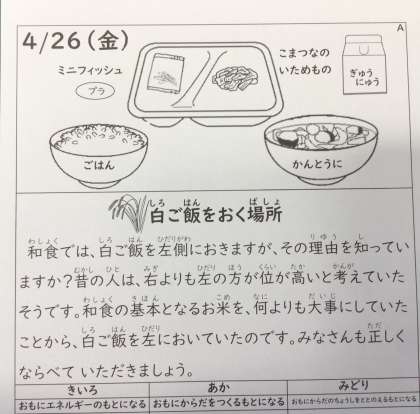 A
4/26(金)
ミニフィッシュ
プラ
こまつなの
いためもの
ぎゅう
にゅう
ごはん
かんとうに
白ご飯をおく場所
和食では、白ご飯を左側におきますが、その理由を知ってい
ますか?昔の人は、右よりも左の方が位が高いと考えていた
そうです。和食の基本となるお米を、何よりも大事にしていた
ことから、白ご飯を左においていたのです。みなさんも正しく
ならべて いただきましょう。
きいろ
あか
みどり
おもにエネルギーのもとになる
おもにからだをつくるもとになる
おもにからだのちょうしをととのえるもとになる